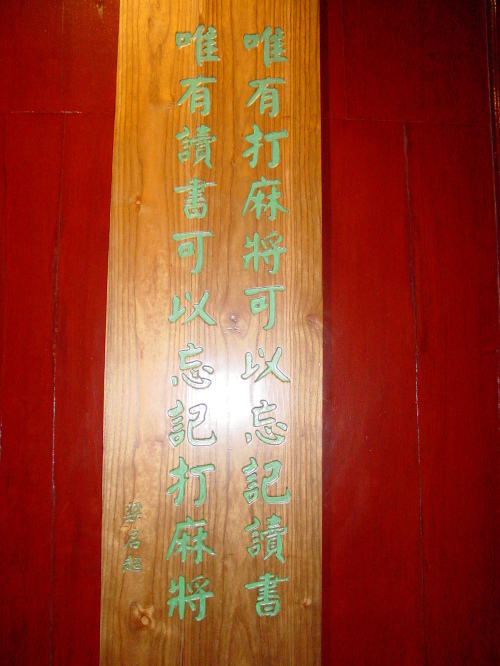 唯有打麻將可以忘記讀書
唯有讀書可以忘記打麻將
梁启超